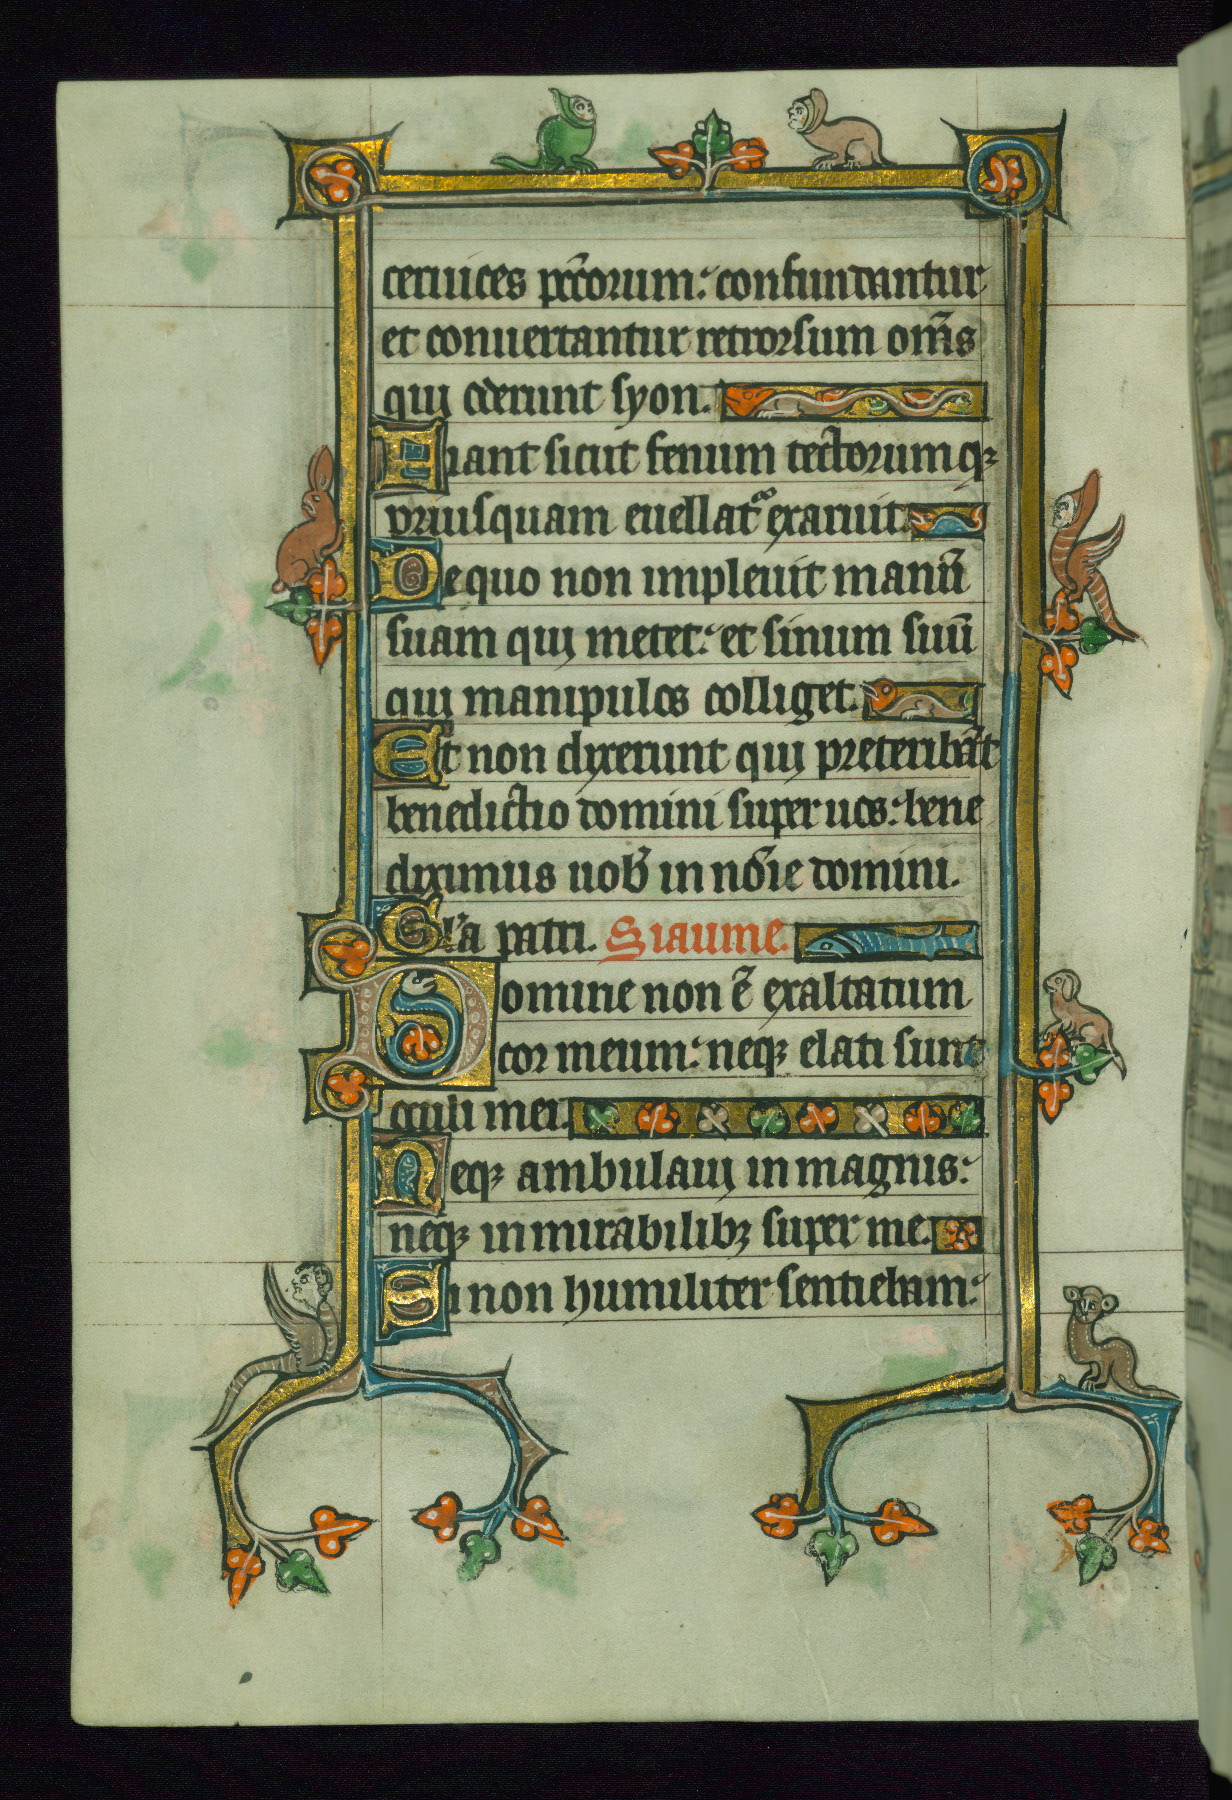 ceruices pcc̄orum: confundantur
et conuertantur retrorsum om̄s
qui oderunt syon.
Fiant sicut fenum tectorum qꝫ
priusquam euellat᷑ exaruit.
De quo non impleuit manū
suam qui metet: et sinum suū
qui manipulos colliget.
Et non dixerunt qui preteribāt
benedictio domini super uos: bene
diximus uob̄ in nōīe domini.
Gl'a patri. Siaume.
Domine non ē exaltatum
cor meum: neqꝫ elati sunt
oculi mei.
Neqꝫ ambulaui in magnis:
neqꝫ in mirabilibꝫ super me.
Si non humiliter sentiebam: